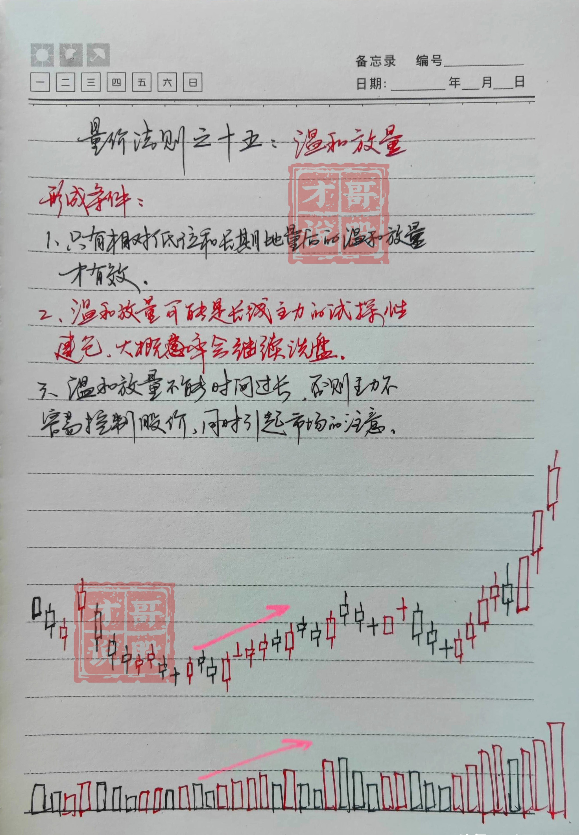 备忘录 编号
一 二 三 四 五 六 日
日期: 年 月 日
量价法则之十五：温和放量
形成条件：
1、只有相对低位和长期地量后的温和放量
才有效.
2、温和放量可能是长线主力的试探性
建仓.大概意味会继续洗盘.
三、温和放量不能时间过长.否则主力不
容易控制股价,同时引起市场的注意.
才哥
说股
才哥